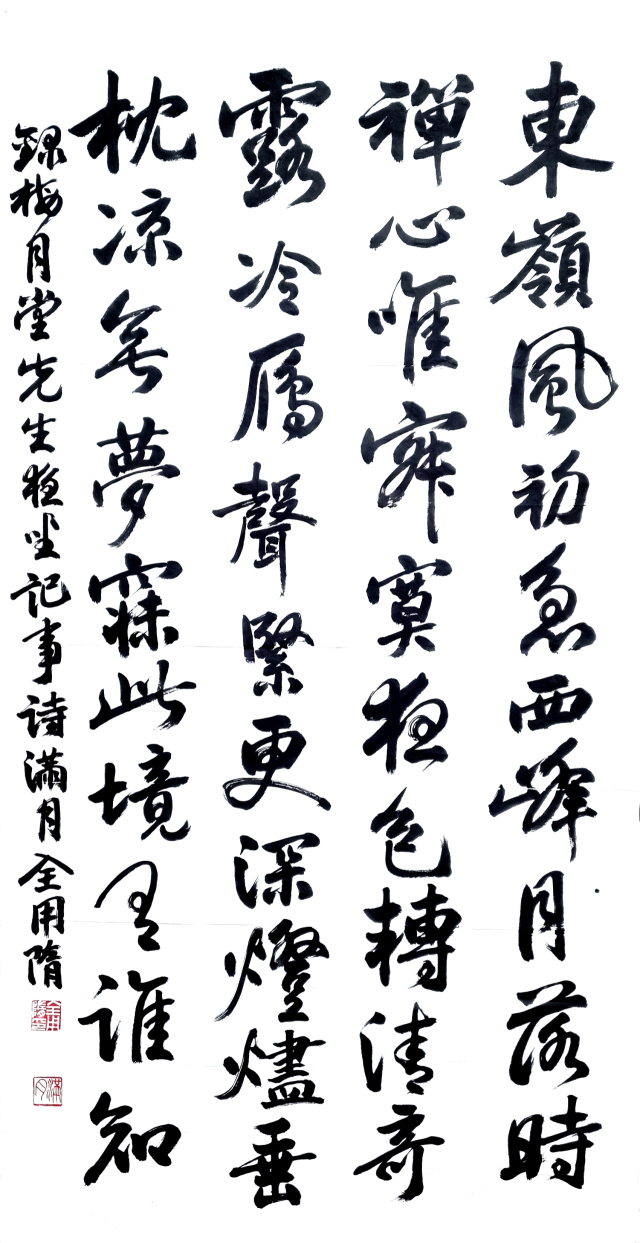 東嶺風初急西峰月落時
禪心唯寂寞夜色轉清奇
露冷鴈聲緊更深燈燼垂
枕凉無夢寐此境有誰知
錄梅月堂先生夜坐記事詩滿月全用隋
滿月